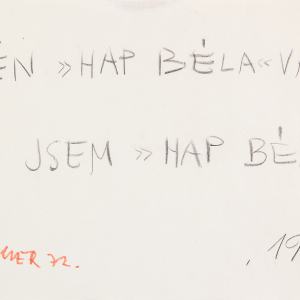 ÉN »HAP BÉLA« VA
JSEM »HAP BÉ
72.
, 19